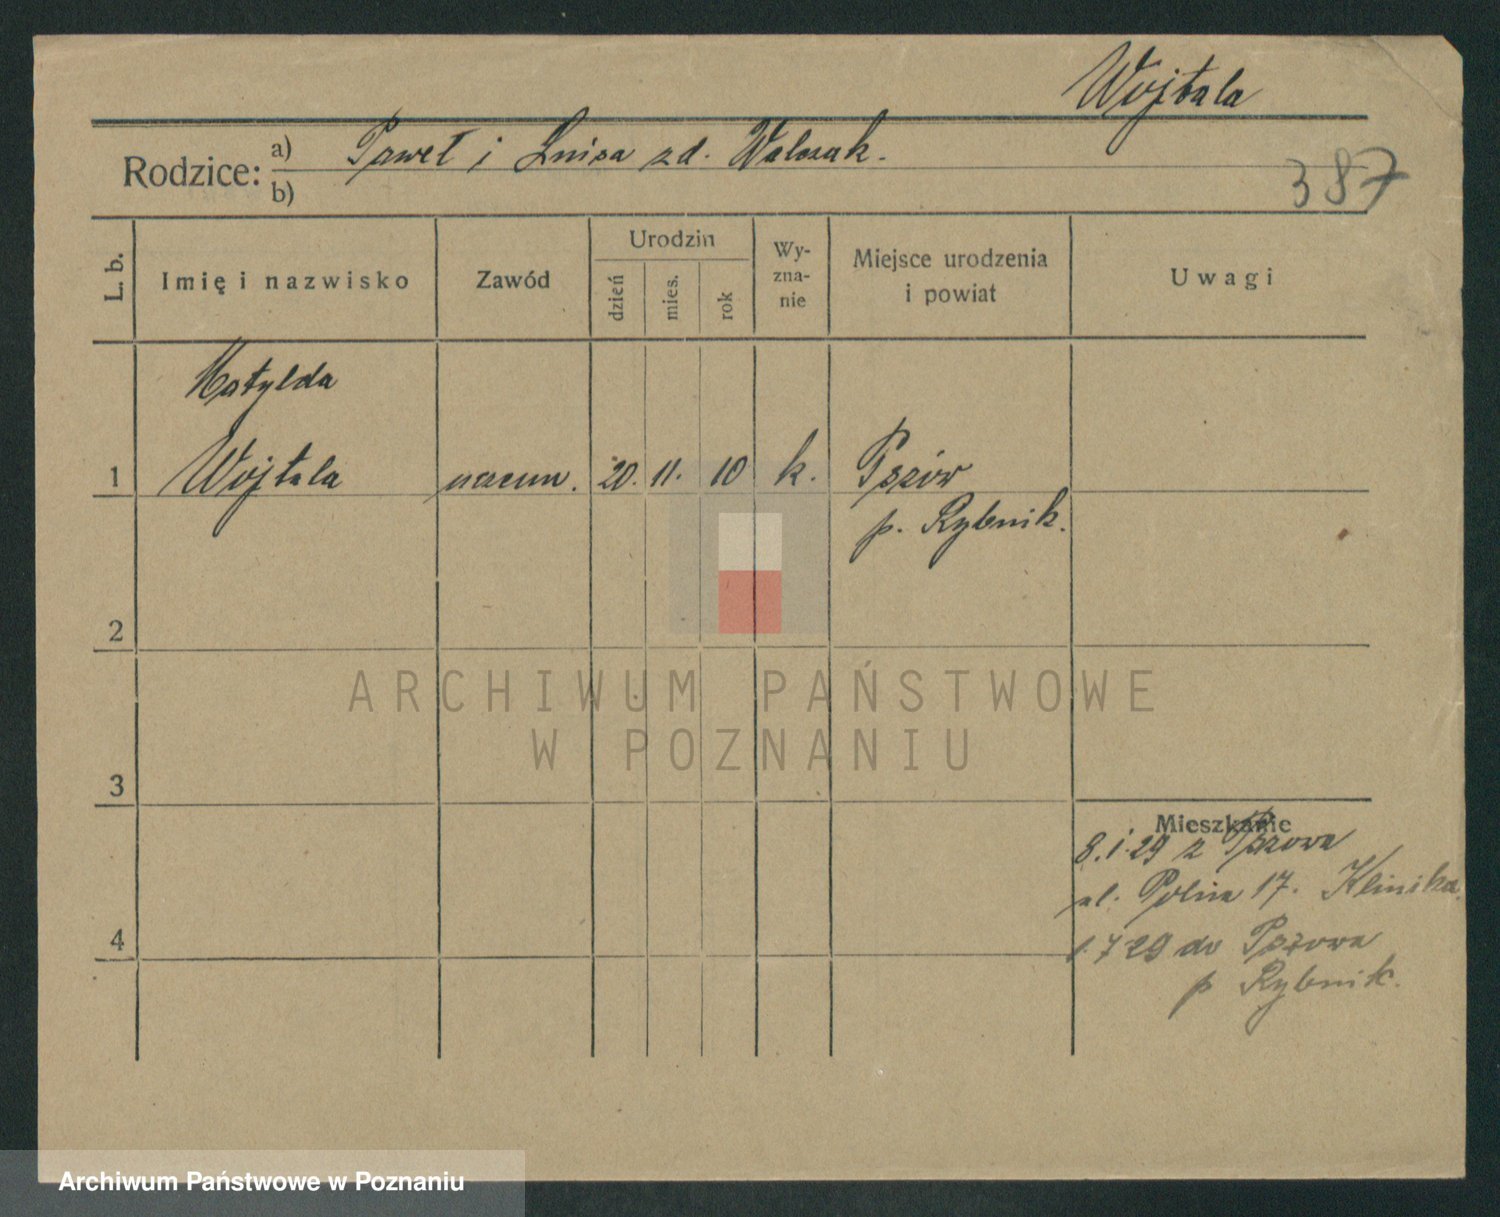 Wojtala
Rodzice: a) Paweł i Luiza zd. Walczak.
b)
387
L. b.
Imię i nazwisko
Zawód
Urodzin
dzień
mies.
rok
Wy-
zna-
nie
Miejsce urodzenia
i powiat
Uwagi
Matylda
1 Wojtala uczenn. 20. 11. 10 k. Pszów
p. Rybnik.
2
3
4
Mieszkanie
8.1.29 z Pszowa
ul. Polna 17. Klinika.
1.7 29 do Pszowa
p Rybnik.
ARCHIWUM PAŃSTWOWE
W POZNANIU
Archiwum Państwowe w Poznaniu